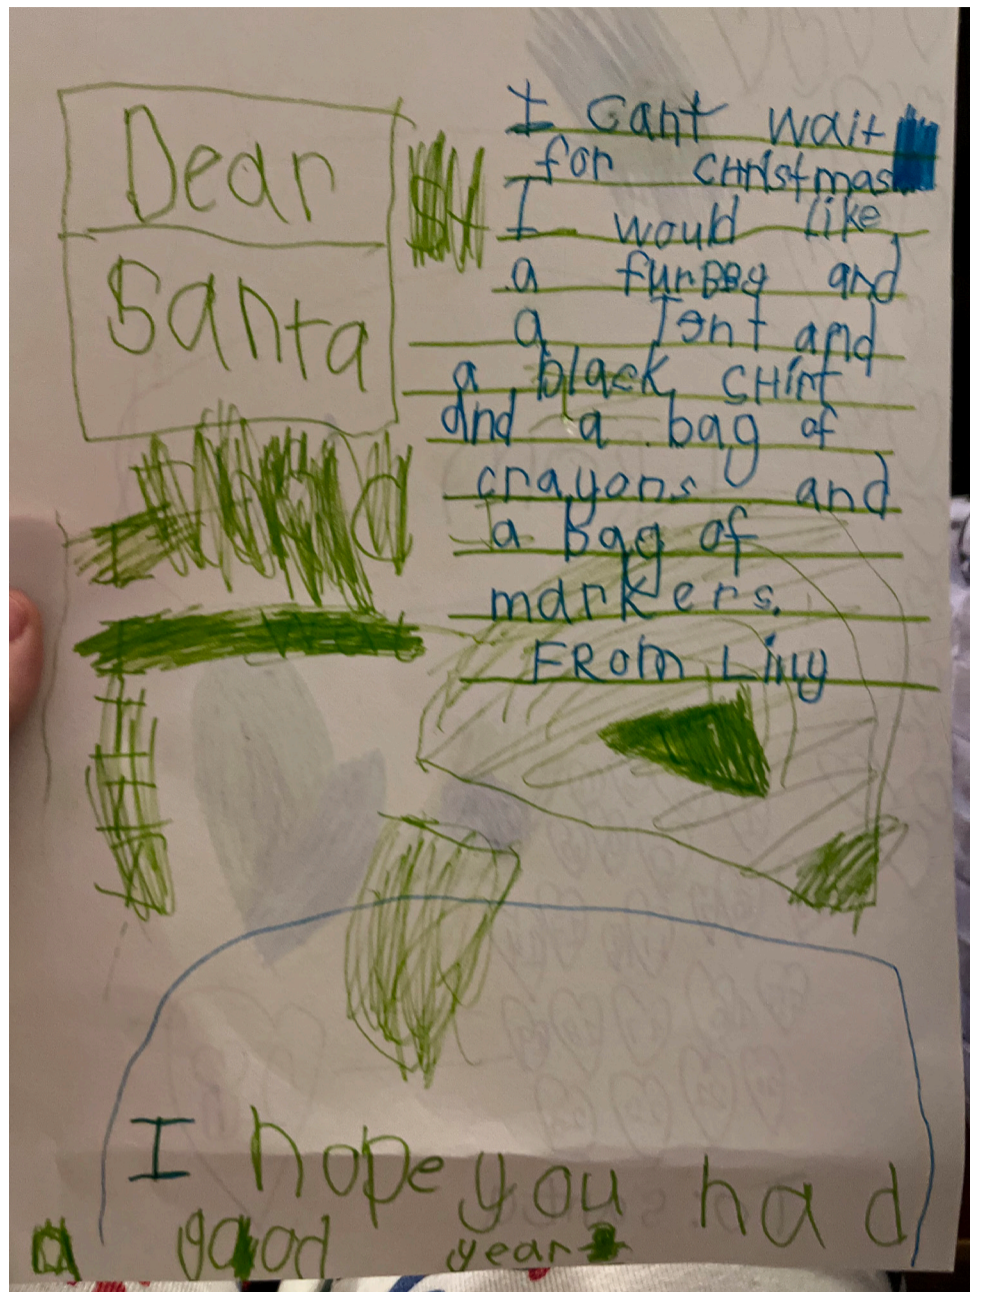 Dear
Santa
I cant wait
for CHristmas
I would like
a furBay and
a Tent and
a black SHirt
and a bag of
crayons and
a Bag of
markers.
FROM Liliy
I hope you had
a good year